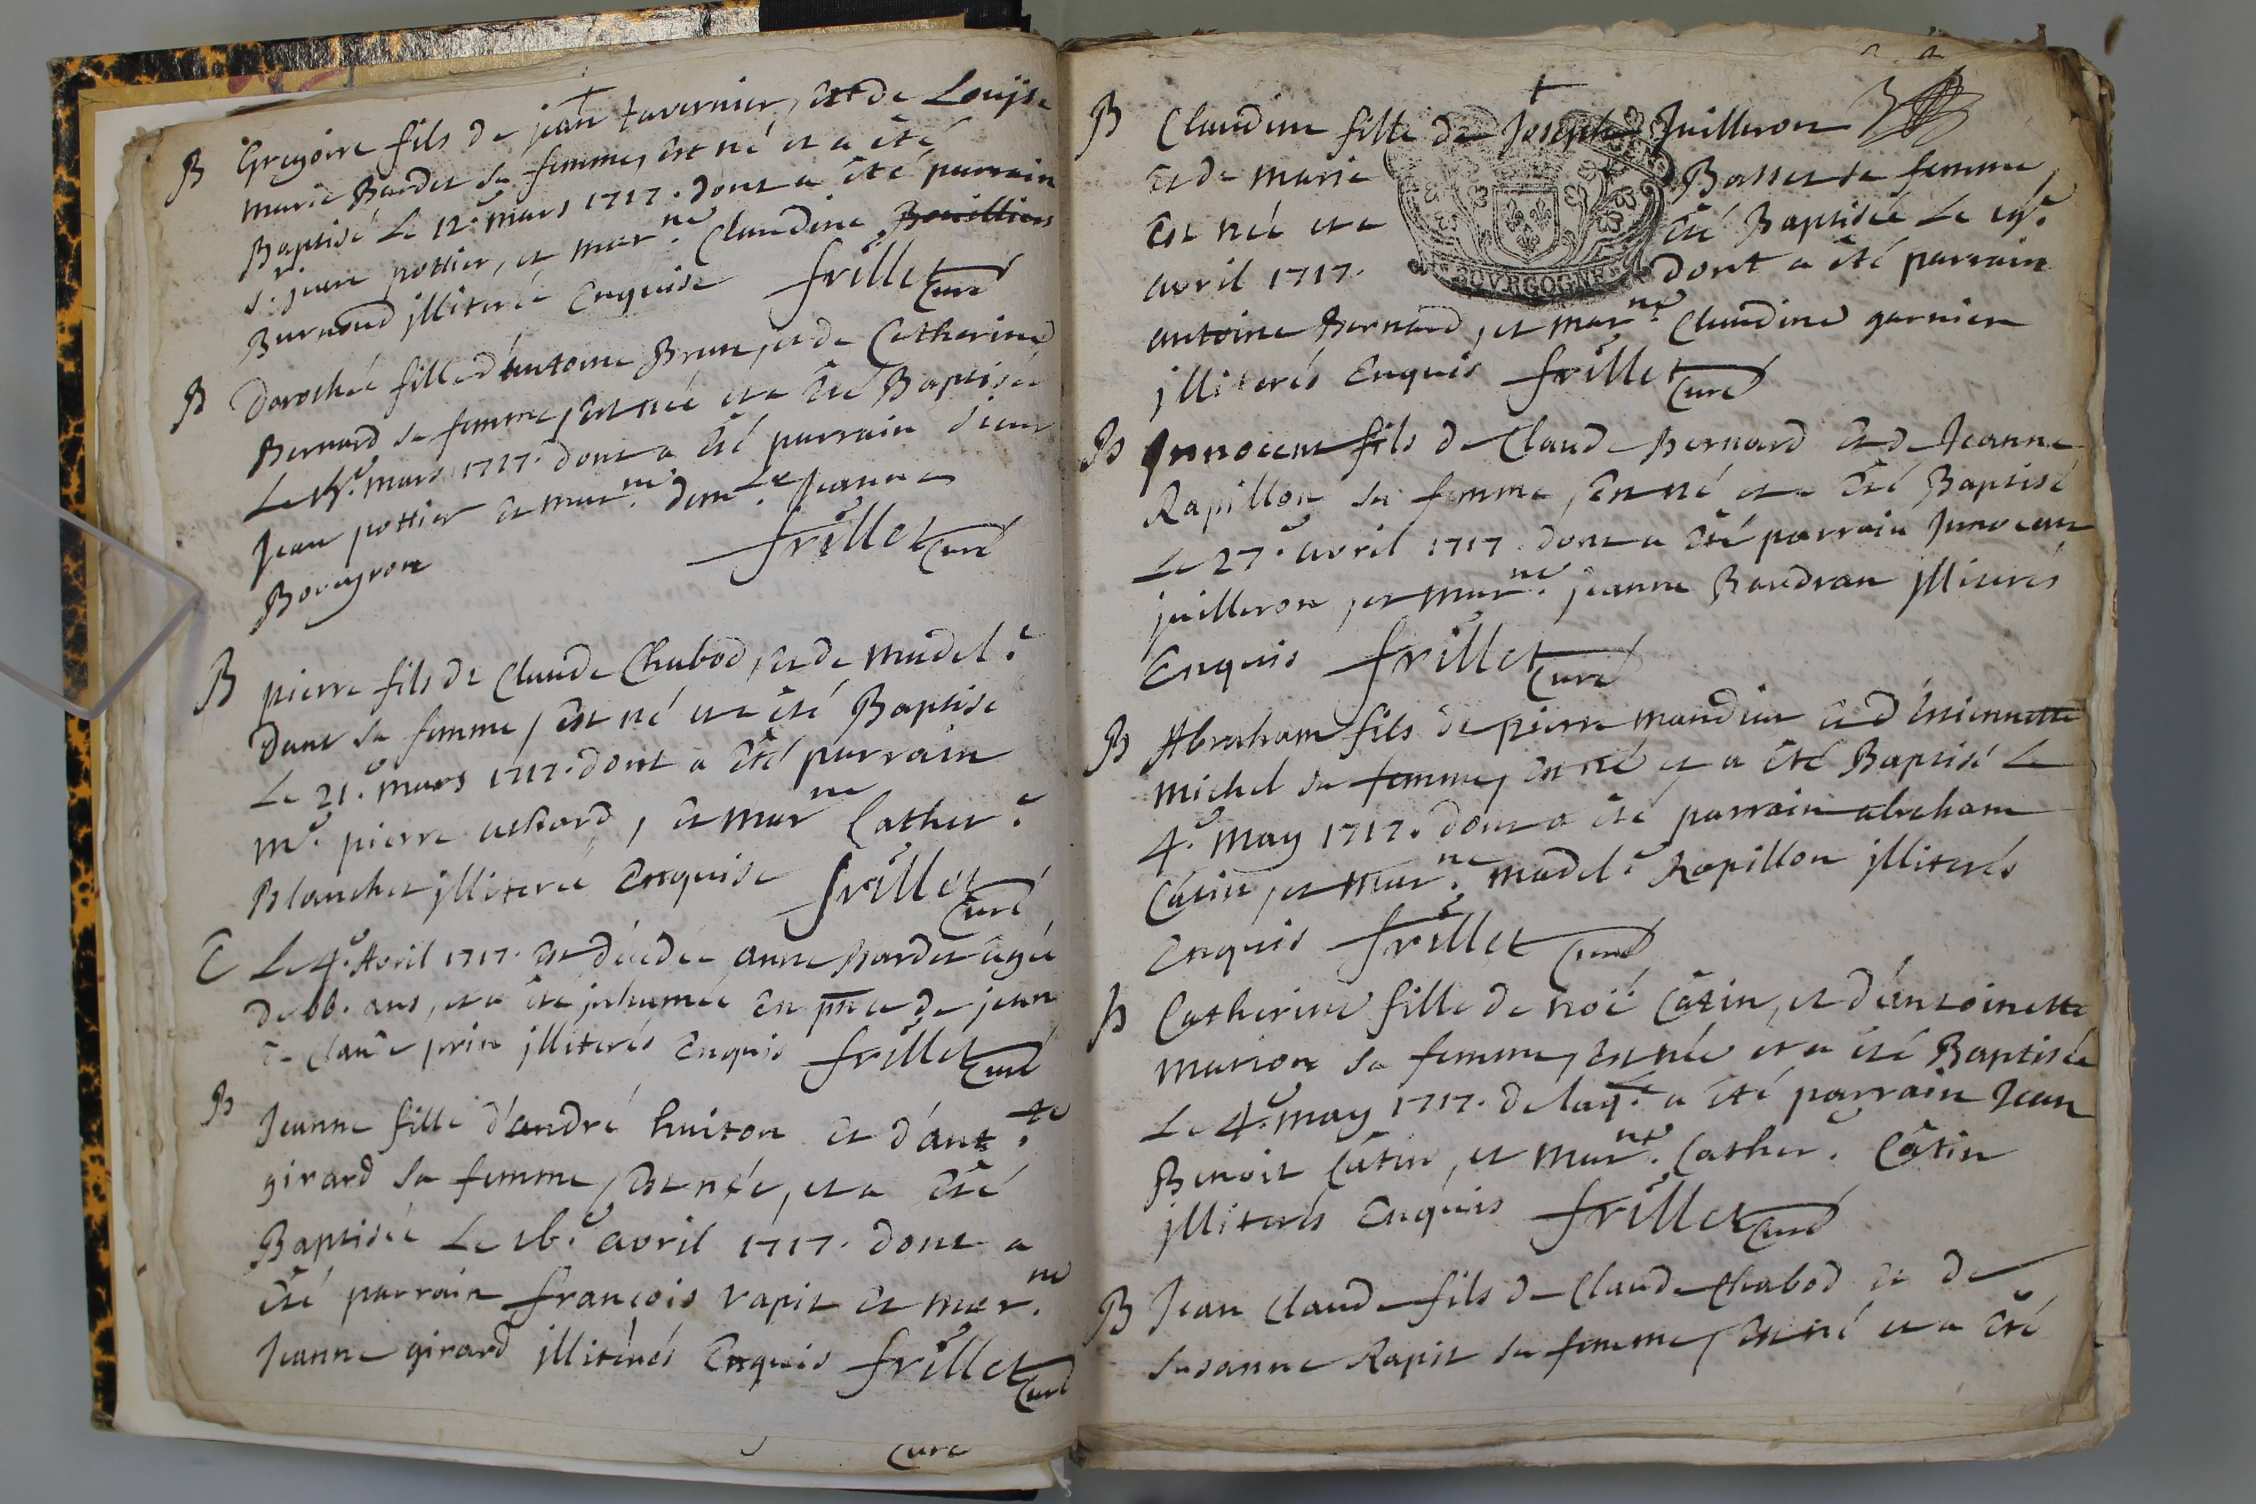 B Gregoire fils de jean tavernier, et de Louyse
marie Bardet sa femme, est né et a été
Baptisé Le 12.e mars 1717. dont a été parrain
s.r jean pottier, et mar.ne Claudine Bouillier
Burnoud jlliterée Enquise frillet Curé
B Dorothée fille d'antoine Brun, et de Catherine
Bernard sa femme, est née et a été Baptisée
mars 1717. dont a été parrain sieur
Jean pottier et mar.ne dem.lle Jeanne
Boveyron frillet Curé
B pierre fils de Claude Chabod, et de madel.e
Dane sa femme, est né et a été Baptisé
Le 21.e mars 1717. dont a été parrain
m.e pierre , et mar.ne Cather.e
Blanchet jlliterée Enquise frillet Curé
Le 4.e Avril 1717. est décédée anne Bardet agée
de 66. ans, et a été jnhumée en pnce de jean
et Claude prin jlliterés Enquis frillet Curé
B Jeanne fille d'andré huiton et d'ant.te
girard sa femme, est née, et a été
Baptisée Le 16.e avril 1717. dont a
été parrain françois rapit et mar.ne
Jeanne girard jlliterés Enquis frillet Curé
Curé
B Claudine fille de Joseph Juilleron
et de marie Bosset sa femme,
est née et a été Baptisée Le 19.e
avril 1717. dont a été parrain
BOVRGOGNE
antoine Bernard, et mar.ne Claudine garnier
jlliterés Enquis frillet Curé
B Jnnocent fils de Claude Bernard et de Jeanne
Rapillon sa femme, est né et a été Baptisé
Le 27.e avril 1717. dont a été parrain Jnnocent
juilleron, et mar.ne jeanne Baudran jlliterés
Enquis frillet Curé
B Abraham fils de pierre mandier et d'estiennette
michel sa femme, est né et a été Baptisé Le
4.e May 1717. dont a été parrain abraham
Câtin, et mar.ne madel.e Rapillon jlliterés
Enquis frillet Curé
B Catherine fille de noé Câtin, et d'antoinette
marion sa femme, est née et a été Baptisée
Le 4.e may 1717. de laq.le a été parrain Jean
Benoit Câtin, et mar.ne Cather.e Câtin
jlliterés Enquis frillet Curé
B Jean Claude fils de Claude Chabod et de
susanne Rapit sa femme, est né et a été